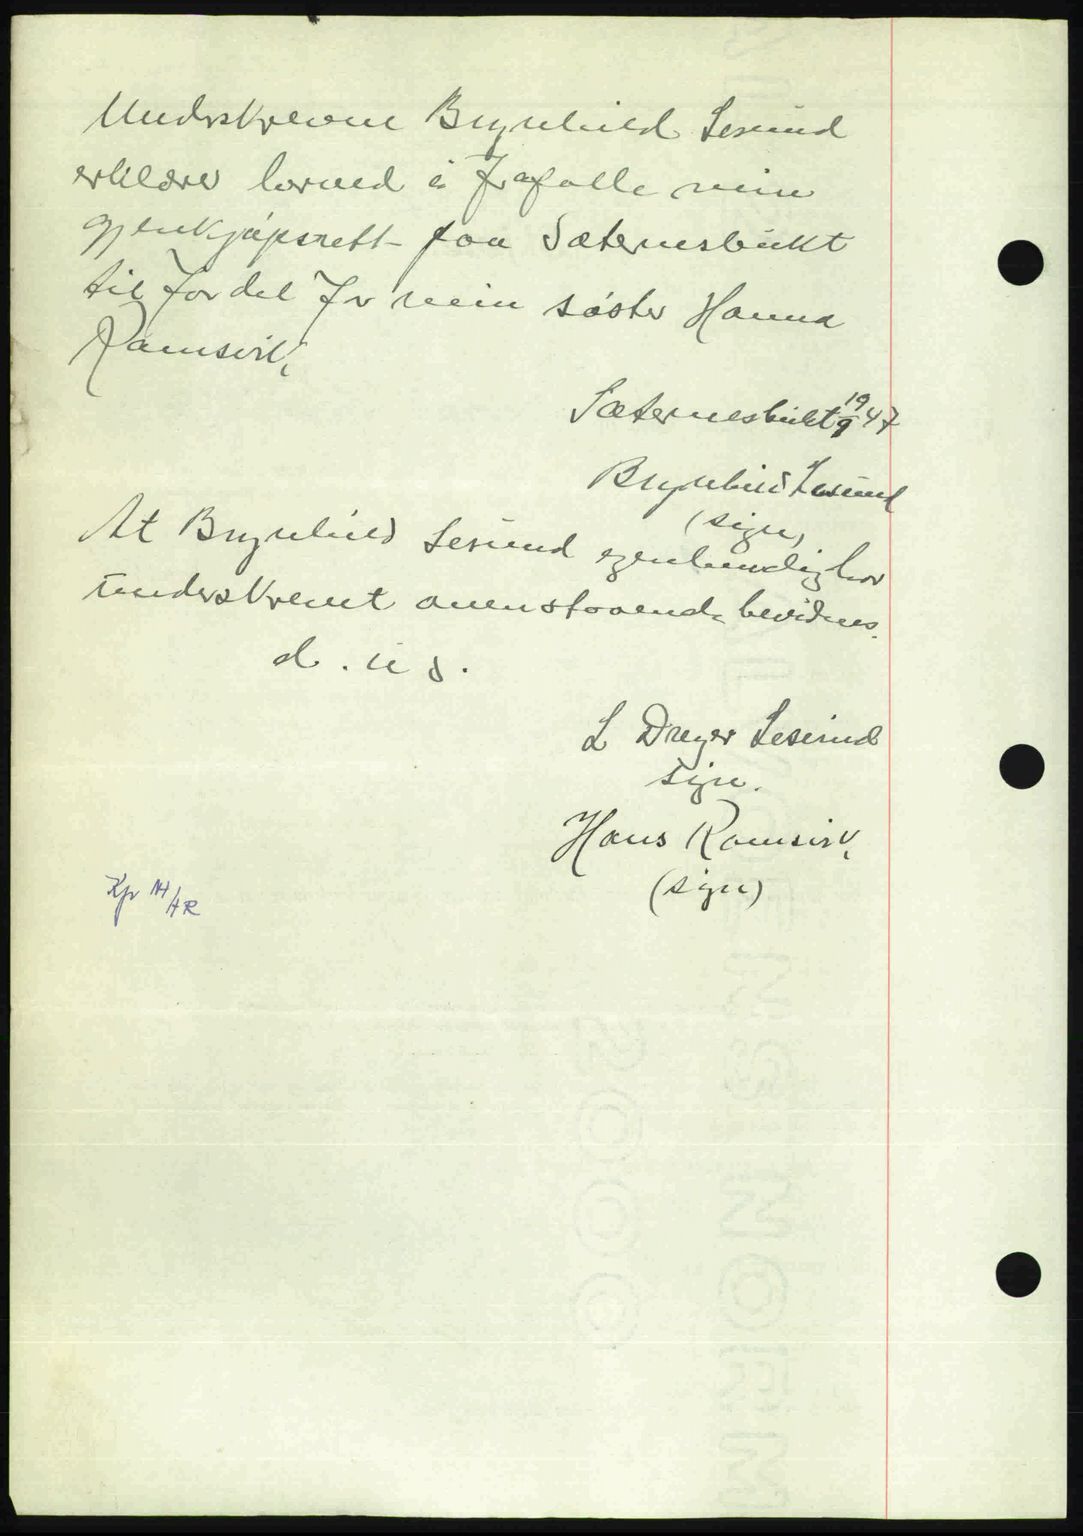 Underskrevne Brynhild Lesund
erklærer herved å frafalle min
gjenkjøpsrett paa Sæternesbukt
til fordel for min søster Hanna
Ramsvik,
Sæternesbukt 19/9 47
Brynhild Lesund
(sign)
At Brynhild Lesund egenhendig har
underskrevet ovenstaaende bevidnes.
d. u s.
L Dreyer Lesund
sign.
Hans Ramsvik,
(sign)